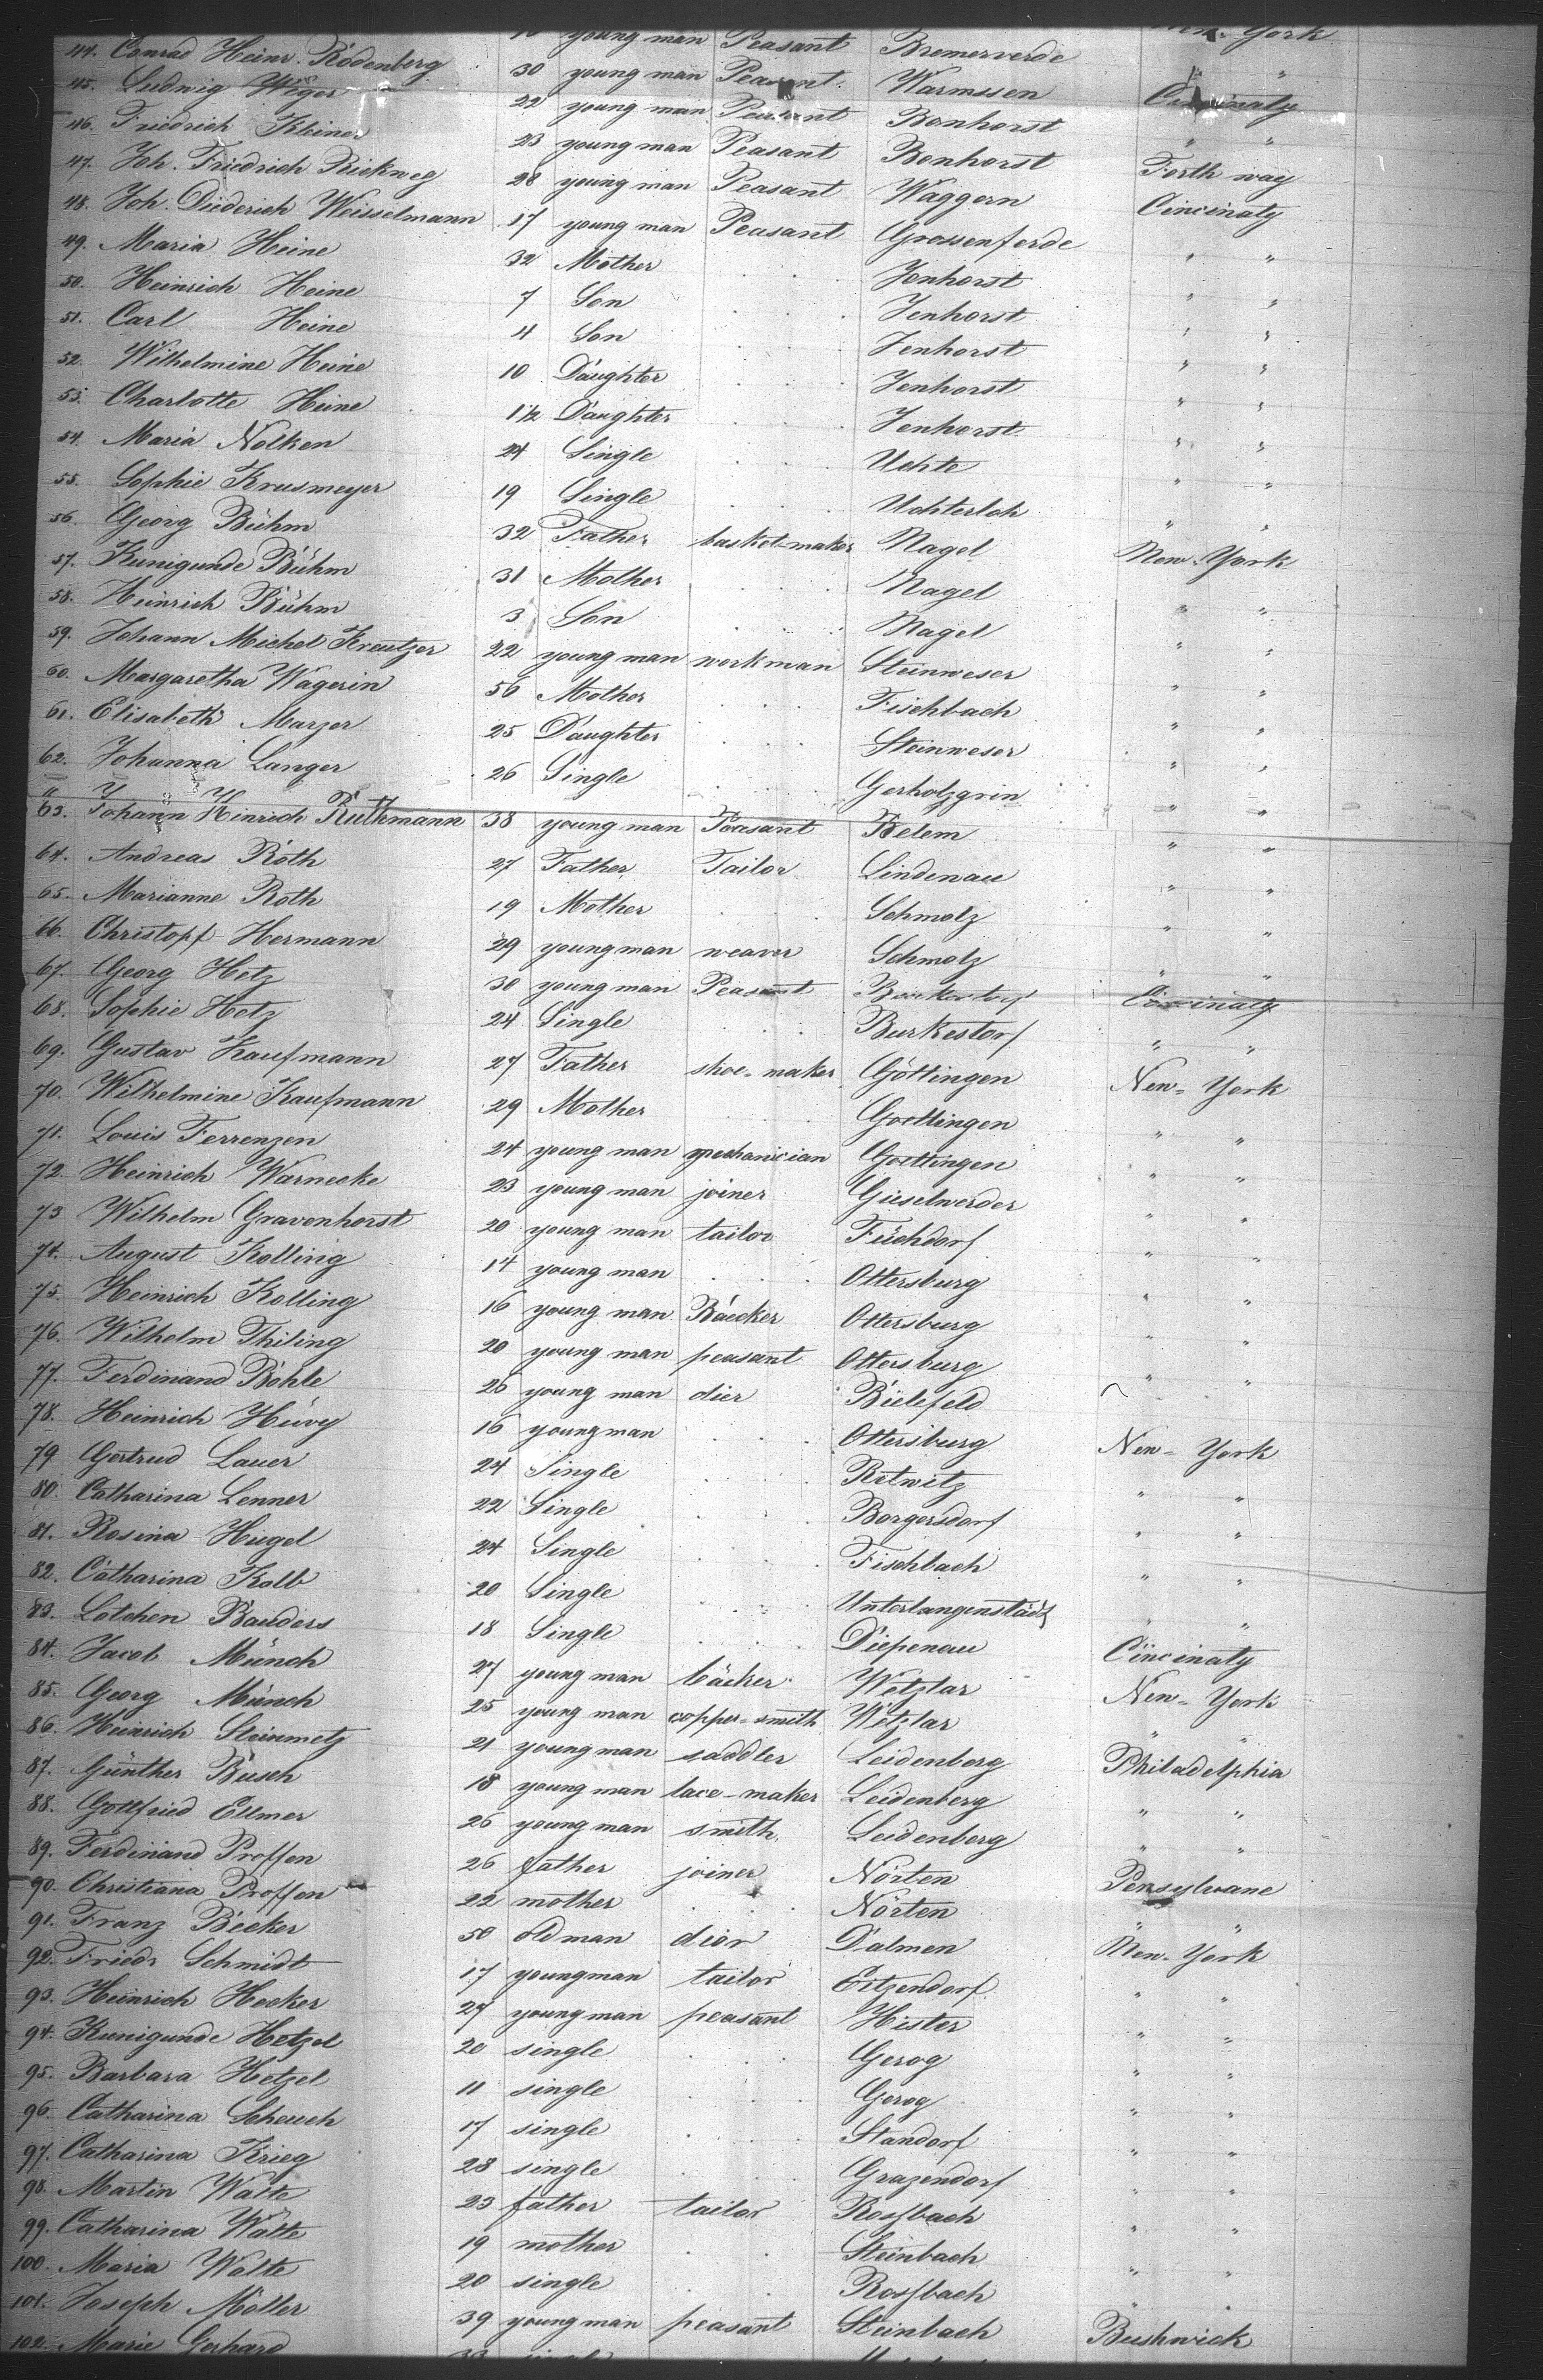 10 young man Peasant Bremerverde New-York
44. Conrad Heinr. Rödenberg 30 young man Peasant Warmssen Cincinaty
45. Ludwig Wiger 22 young man Peasant Bonhorst " "
46. Friedrich Kleiner 23 young man Peasant Bonhorst Forth way
47. Joh. Friedrich Rickweg 28 young man Peasant Waggern Cincinaty
48. Joh. Diederich Weisselmann 17 young man Peasant Grossenferde " "
49. Maria Heine 32 Mother Jenhorst " "
50. Heinrich Heine 7 Son Jenhorst " "
51. Carl Heine 4 Son Jenhorst " "
52. Wilhelmine Heine 10 Daughter Jenhorst " "
53. Charlotte Heine 1 1/2 Daughter Jenhorst " "
54. Maria Nolken 24 Single Uchte " "
55. Sophie Krusmeyer 19 Single Uchterloh " "
56. Georg Bühm 32 Father basket-maker Nagel New-York
57. Kunigunde Bühm 31 Mother Nagel " "
58. Heinrich Bühm 3 Son Nagel " "
59. Johann Michel Kreutzer 22 young man workman Steinweser " "
60. Margaretha Wagerin 56 Mother Fischbach " "
61. Elisabeth Marzer 25 Daughter Steinweser " "
62. Johanna Langer 26 Single Gerholzgrin " "
63. Johann Hinrich Ruthmann 38 young man Peasant Belem " "
64. Andreas Roth 27 Father Tailor Lindenau " "
65. Marianne Roth 19 Mother Schmolz " "
66. Christopf Hermann 29 young man weaver Schmolz " "
67. Georg Hetz 30 young man Peasant Burkestorf Cincinaty
68. Sophie Hetz 24 Single Burkestorf " "
69. Gustav Kaufmann 27 Father shoe-maker Göttingen New-York
70. Wilhelmine Kaufmann 29 Mother Goettingen " "
71. Louis Ferrenzen 24 young man mechanician Goettingen " "
72. Heinrich Warnecke 23 young man joiner Gieselwerder " "
73 Wilhelm Gravenhorst 20 young man tailor Füchdorf " "
74. August Kolling 14 young man Ottersburg " "
75. Heinrich Kolling 16 young man Baecker Ottersburg " "
76. Wilhelm Thiling 20 young man peasant Ottersburg " "
77. Ferdinand Böhle 26 young man dier Bielefeld
78. Heinrich Hüvy 16 young man Ottersburg New-York
79 Gertrud Lauer 24 Single Retwitz " "
80. Catharina Lenner 22 Single Borgersdorf " "
81. Rosina Hugel 24 Single Fischbach " "
82. Catharina Kolb 20 Single Unterlangenstädt " "
83. Lotchen Bauders 18 Single Diepenau Cincinaty
84. Jacob Münch 27 young man bäcker Wetzlar New-York
85. Georg Münch 25 young man copper-smith Wetzlar " "
86. Heinrich Steinmetz 21 young man saddler Leidenberg Philadelphia
87. Günther Busch 18 young man lace-maker Leidenberg " "
88. Gottfried Ellmer 26 young man smith. Leidenberg " "
89. Ferdinand Proffen 26 father joiner Nörten Pensylvane
90. Christiana Proffen 22 mother Nörten " "
91. Franz Becker 50 old man dier Dalmen New-York
92. Friedr Schmidt 17 young man tailor Ertzendorf " "
93. Heinrich Hecker 27 young man peasant Hister " "
94. Kunigunde Hetzel 20 single Gerog " "
95. Barbara Hetzel 11 single Gerog " "
96. Catharina Scheuch 17 single Standorf " "
97. Catharina Krieg 28 single Grazendorf " "
98. Martin Walte 23 father tailor Rossbach " "
99. Catharina Walte 19 mother Steinbach " "
100. Maria Walte 20 single Rossbach " "
101. Joseph Möller 39 young man peasant Steinbach Bushwick
102. Marie Gerhard